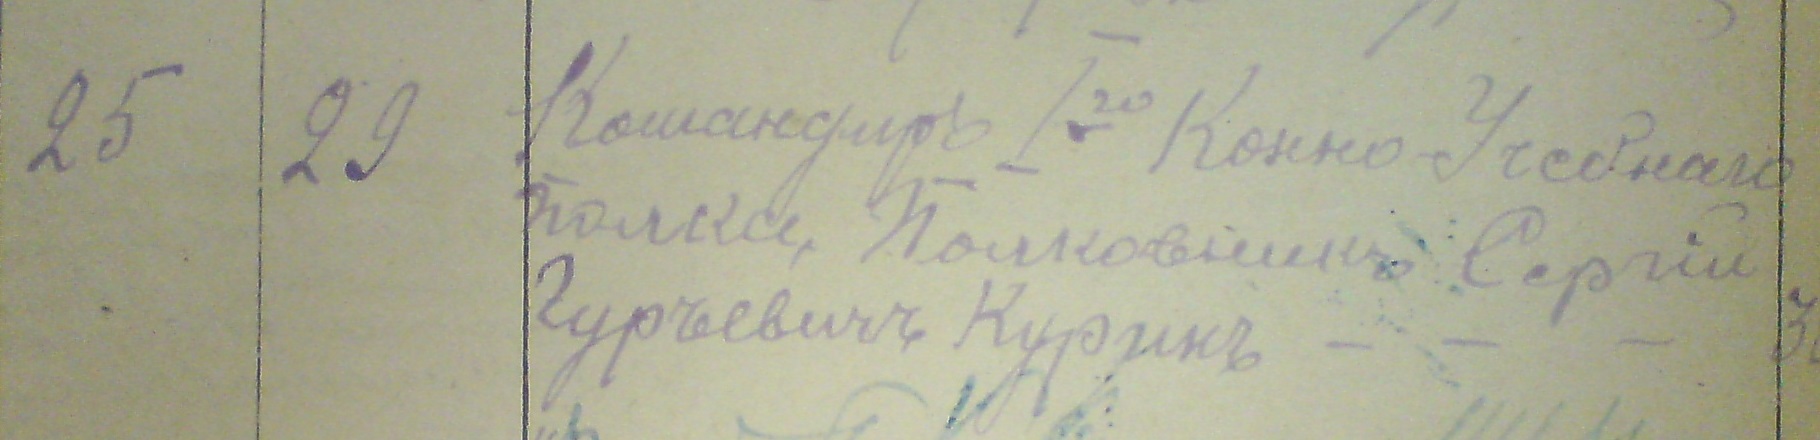 25 29 Командиръ I го Конно-Учебнаго
полка, Полковникъ Сергій
Гурьевичъ Куринъ - - -